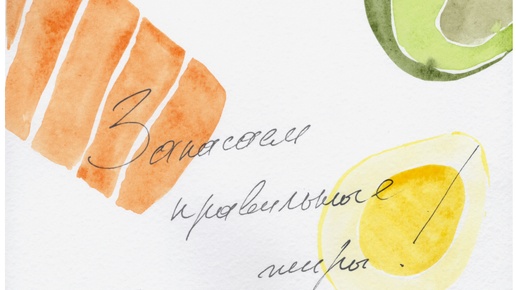 Запасаем
правильные
жиры!